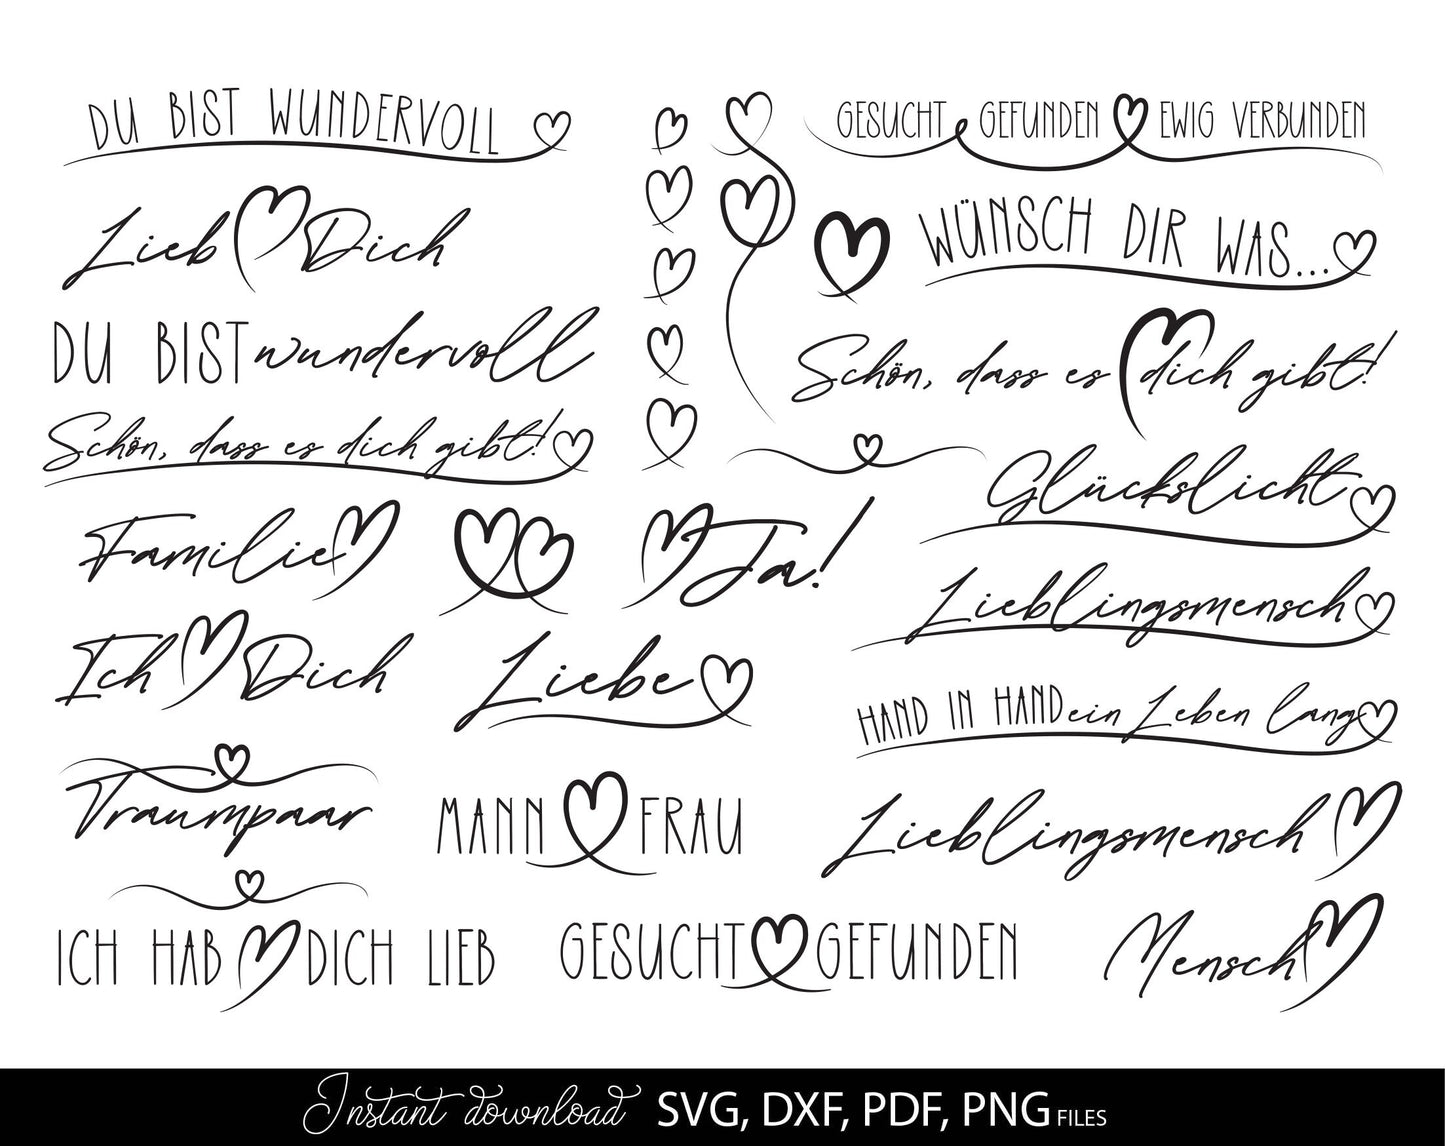 DU BIST WUNDERVOLL
GESUCHT GEFUNDEN EWIG VERBUNDEN
Lieb Dich
WÜNSCH DIR WAS...
DU BIST wundervoll
Schön, dass es dich gibt!
Schön, dass es dich gibt!
Glückslicht
Familie
Ja!
Lieblingsmensch
Ich Dich
Liebe
HAND IN HAND ein Leben lang
Traumpaar
MANN FRAU
Lieblingsmensch
ICH HAB DICH LIEB
GESUCHT GEFUNDEN
Mensch
Instant download SVG, DXF, PDF, PNG FILES